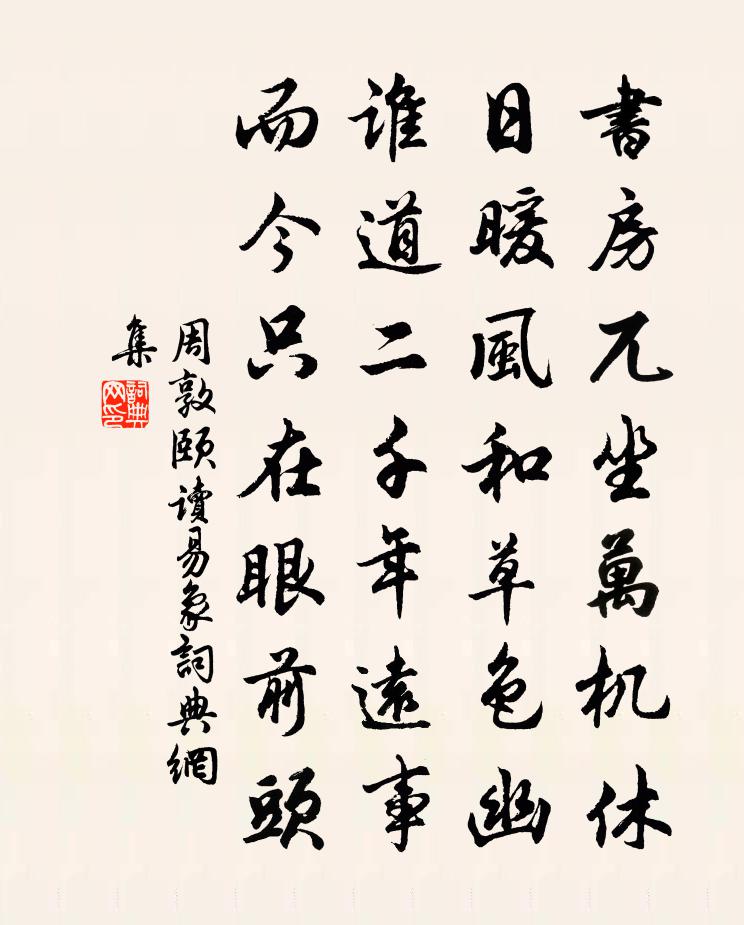 書房兀坐萬机休
日暖風和草色幽
誰道二千年遠事
而今只在眼前頭
周敦頤讀易象詞典網
集
詞典
网印